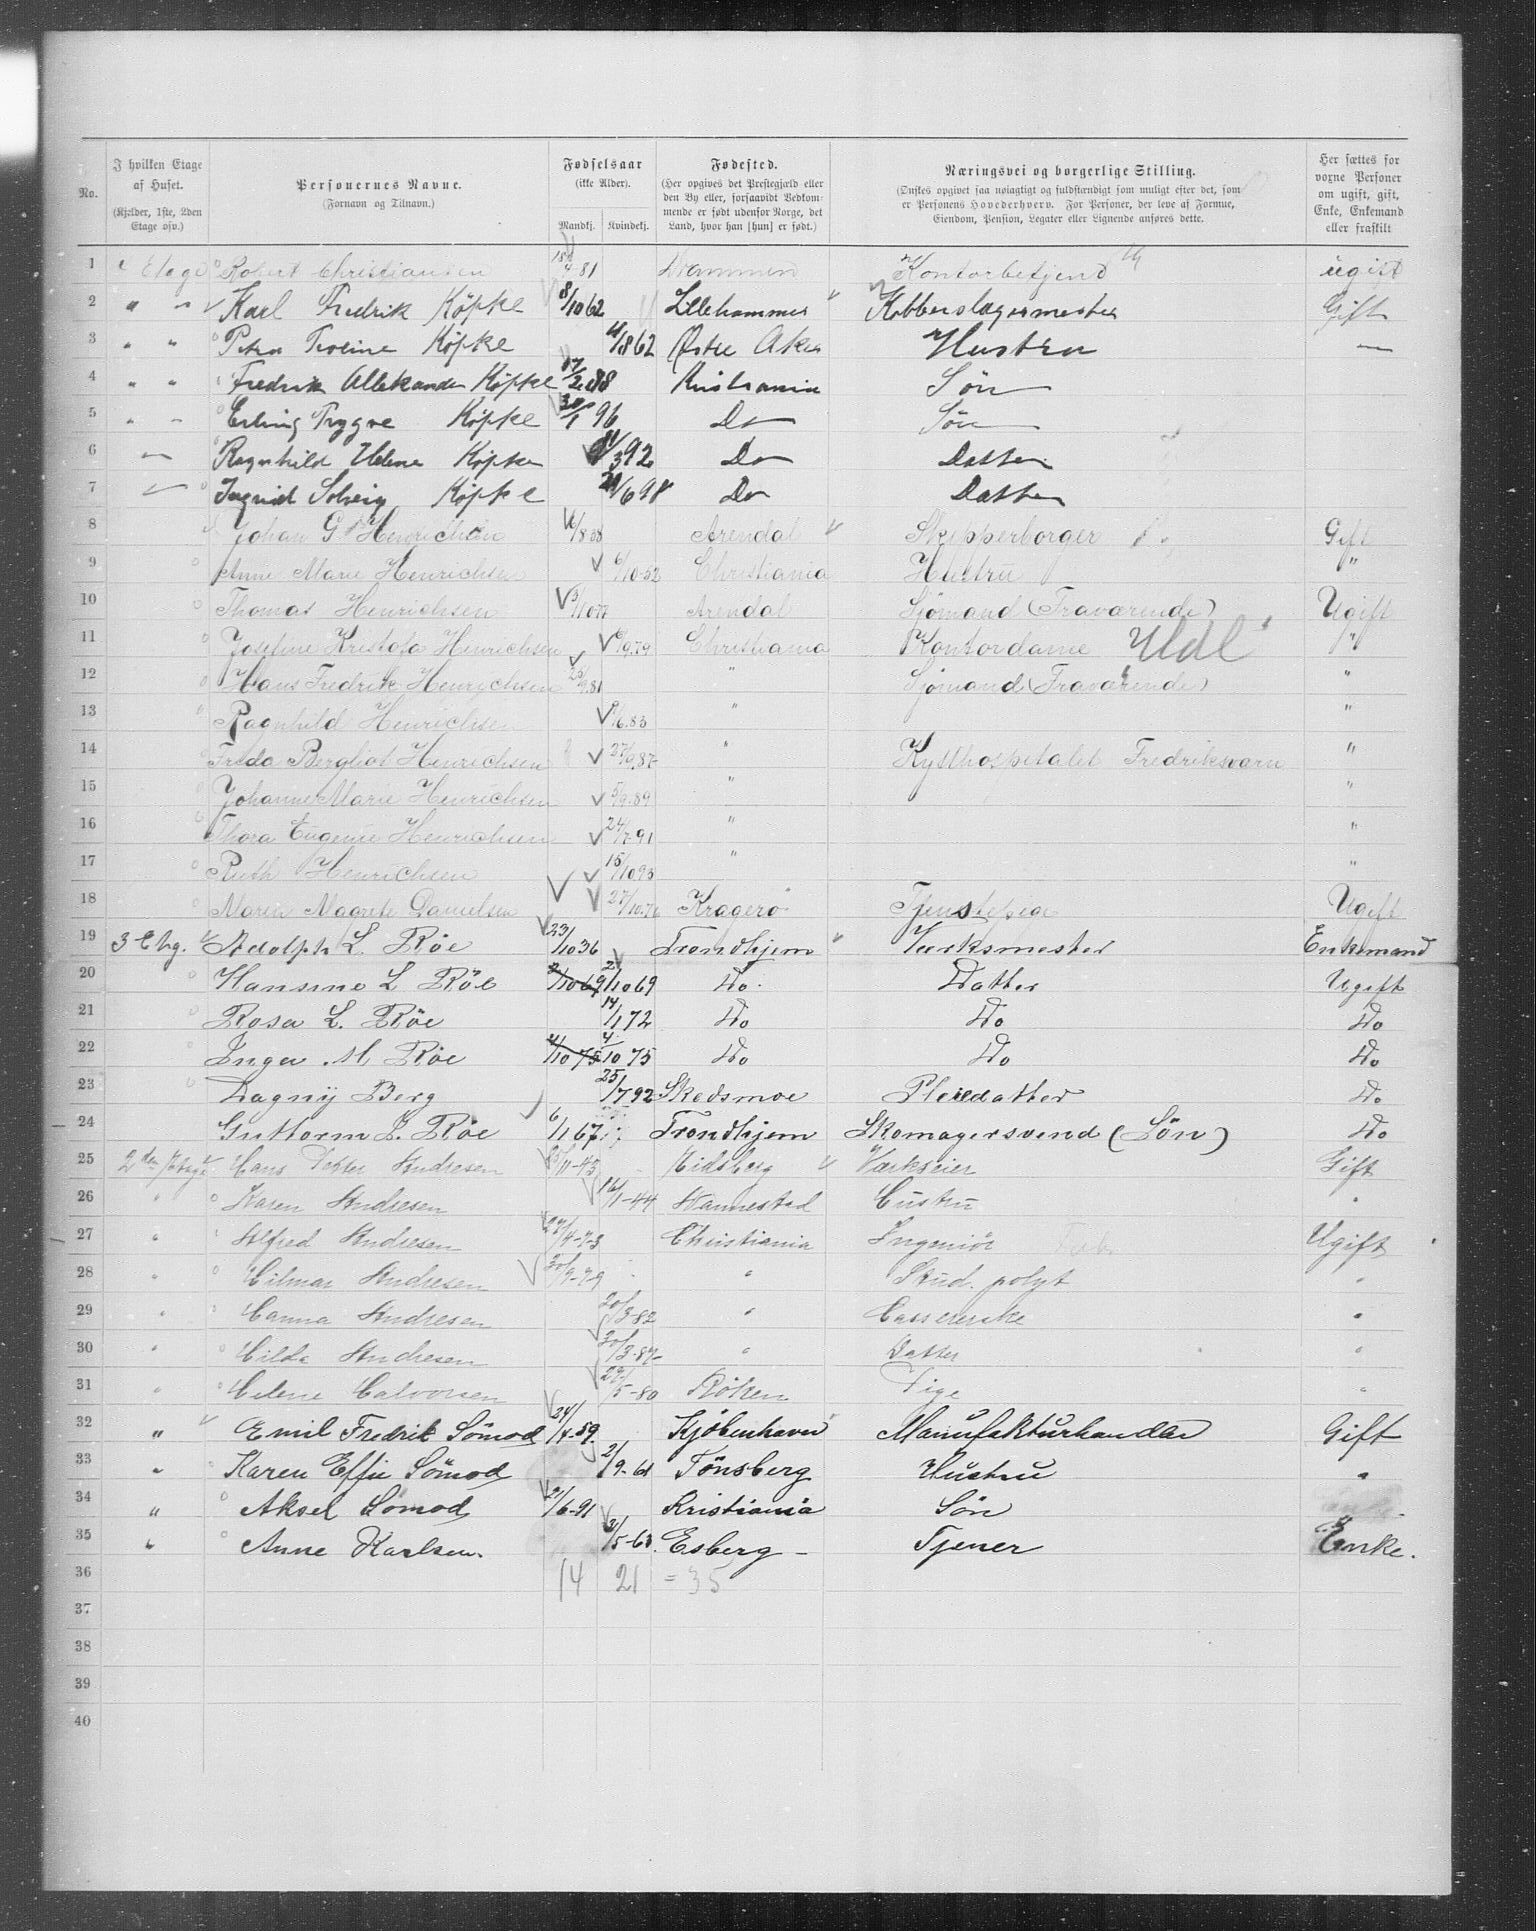 No. I hvilken Etage af Huset. (Kjelder, 1ste, 2den Etage osv.) Personernes Navne. (Fornavn og Tilnavn.) Fødselsaar (ikke Alder). Mandkj. Kvindekj. Fødested. (Her opgives det Prestegjæld eller den By eller, forsaavidt Vedkommende er født udenfor Norge, det Land, hvor han [hun] er født.) Næringsvei og borgerlige Stilling. (Ønskes opgivet saa nøiagtigt og fuldstændigt som muligt efter det, som er Personens Hovederhverv. For Personer, der leve af Formue, Eiendom, Pension, Legater eller Lignende anføres dette. Her sættes for voxne Personer om ugift, gift, Enke, Enkemand eller fraskilt
1 Etage Robert Christiansen 18/4 81 Drammen Kontorbetjent ugift
2 " " Karl Fredrik Köpke 8/10 62 Lillehammer Kobberslagermester Gift
3 " " Petra Köpke 862 Østre Aker Hustru —
4 " " Fredrik Köpke 17/2 88 Kristiania Sön
5 " " Erling Trygve Köpke 30/1 96 Do Sön
6 " Ragnhild Helene Köpke 392 Do Datter
7 " Ingrid Solveig Köpke 21/6 98 Do Datter
8 Johan G Henrichsen 16/8 38 Arendal Skipperborger Gift
9 Anne Marie Henrichsen 6/10-52 Christiania Hustru "
10 Thomas Henrichsen 3/10 77 Arendal Sjömand (Fraværende) Ugift
11 Josefine Kristofa Henrichsen 9.79 Christiania Kontordame Udl "
12 Hans Fredrik Henrychsen 25/9.81 " Sjömand (Fraværende) "
13 Ragnhild Henrichsen 6.83 " "
14 Frida Bergliot Henrichsen 27/9.87 " Kysthospitalet Fredriksværn "
15 Johanne Marie Henrichsen 5/9.89 " "
16 Thora Eugenie Henrichsen 24/7-91 " "
17 Ruth Henrichsen 15/10 93 " "
18 Maren Magrete Danielsen 27/10.76 Kragerö Tjenstepige Ugift
19 3 Etg. Adolph L. Röe 23/10 36 Trondhjem Værksmester Enkemand
20 Hansine L Röe 2/10 69 2/10 69 Do. Datter Ugift
21 Rosa L. Röe 14/1 72 Do Do Do
22 Inga M Röe 4/10 75 4/10 75 Do Do Do
23 Dagny Berg 25/7 92 Skedsmoe Pleiedatter Do
24 Guttorm L. Röe 6/1 67 Trondhjem Skomagersvend (Sön) Do
25 2den Etage Hans Andresen 11-43 Eidsberg Værkseier Gift
26 " Karen Andresen 16/1-44 Vannestad Hustru "
27 " Alfred Andresen 4-73 Christiania Ingeniör Ugift
28 " Hilmar Andresen 30/9-79 " Stud. polyt "
29 " Hanna Andresen 20/3-82 " Cassererske "
30 " Hilda Andresen 30/3-87 " Datter "
31 " Helene Halvorsen 29/5-80 Röken Pige "
32 " Emil Fredrik Sömod 24/4-59. Kjöbenhavn Manufakturhandler Gift
33 " Karen Effie Sömod 2/9-61 Tönsberg Hustru "
34 " Aksel Sömod 21/6-91 Kristiania Sön
35 " Anne Karlsen. 5-63. Esberg Tjener Enke.
36 14 21 = 35
37
38
39
40